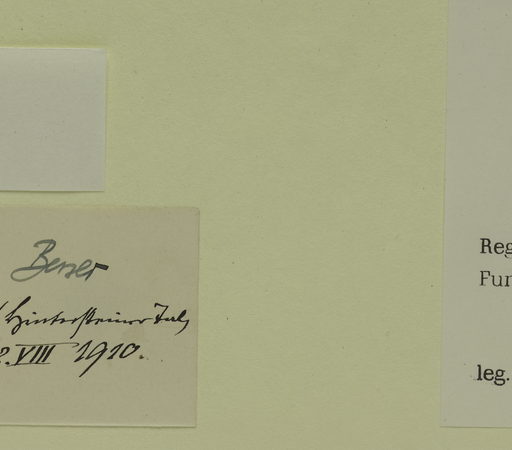 Besser
Hintersteiner Tal,
2. VIII 1910.
Reg
Fun
leg.